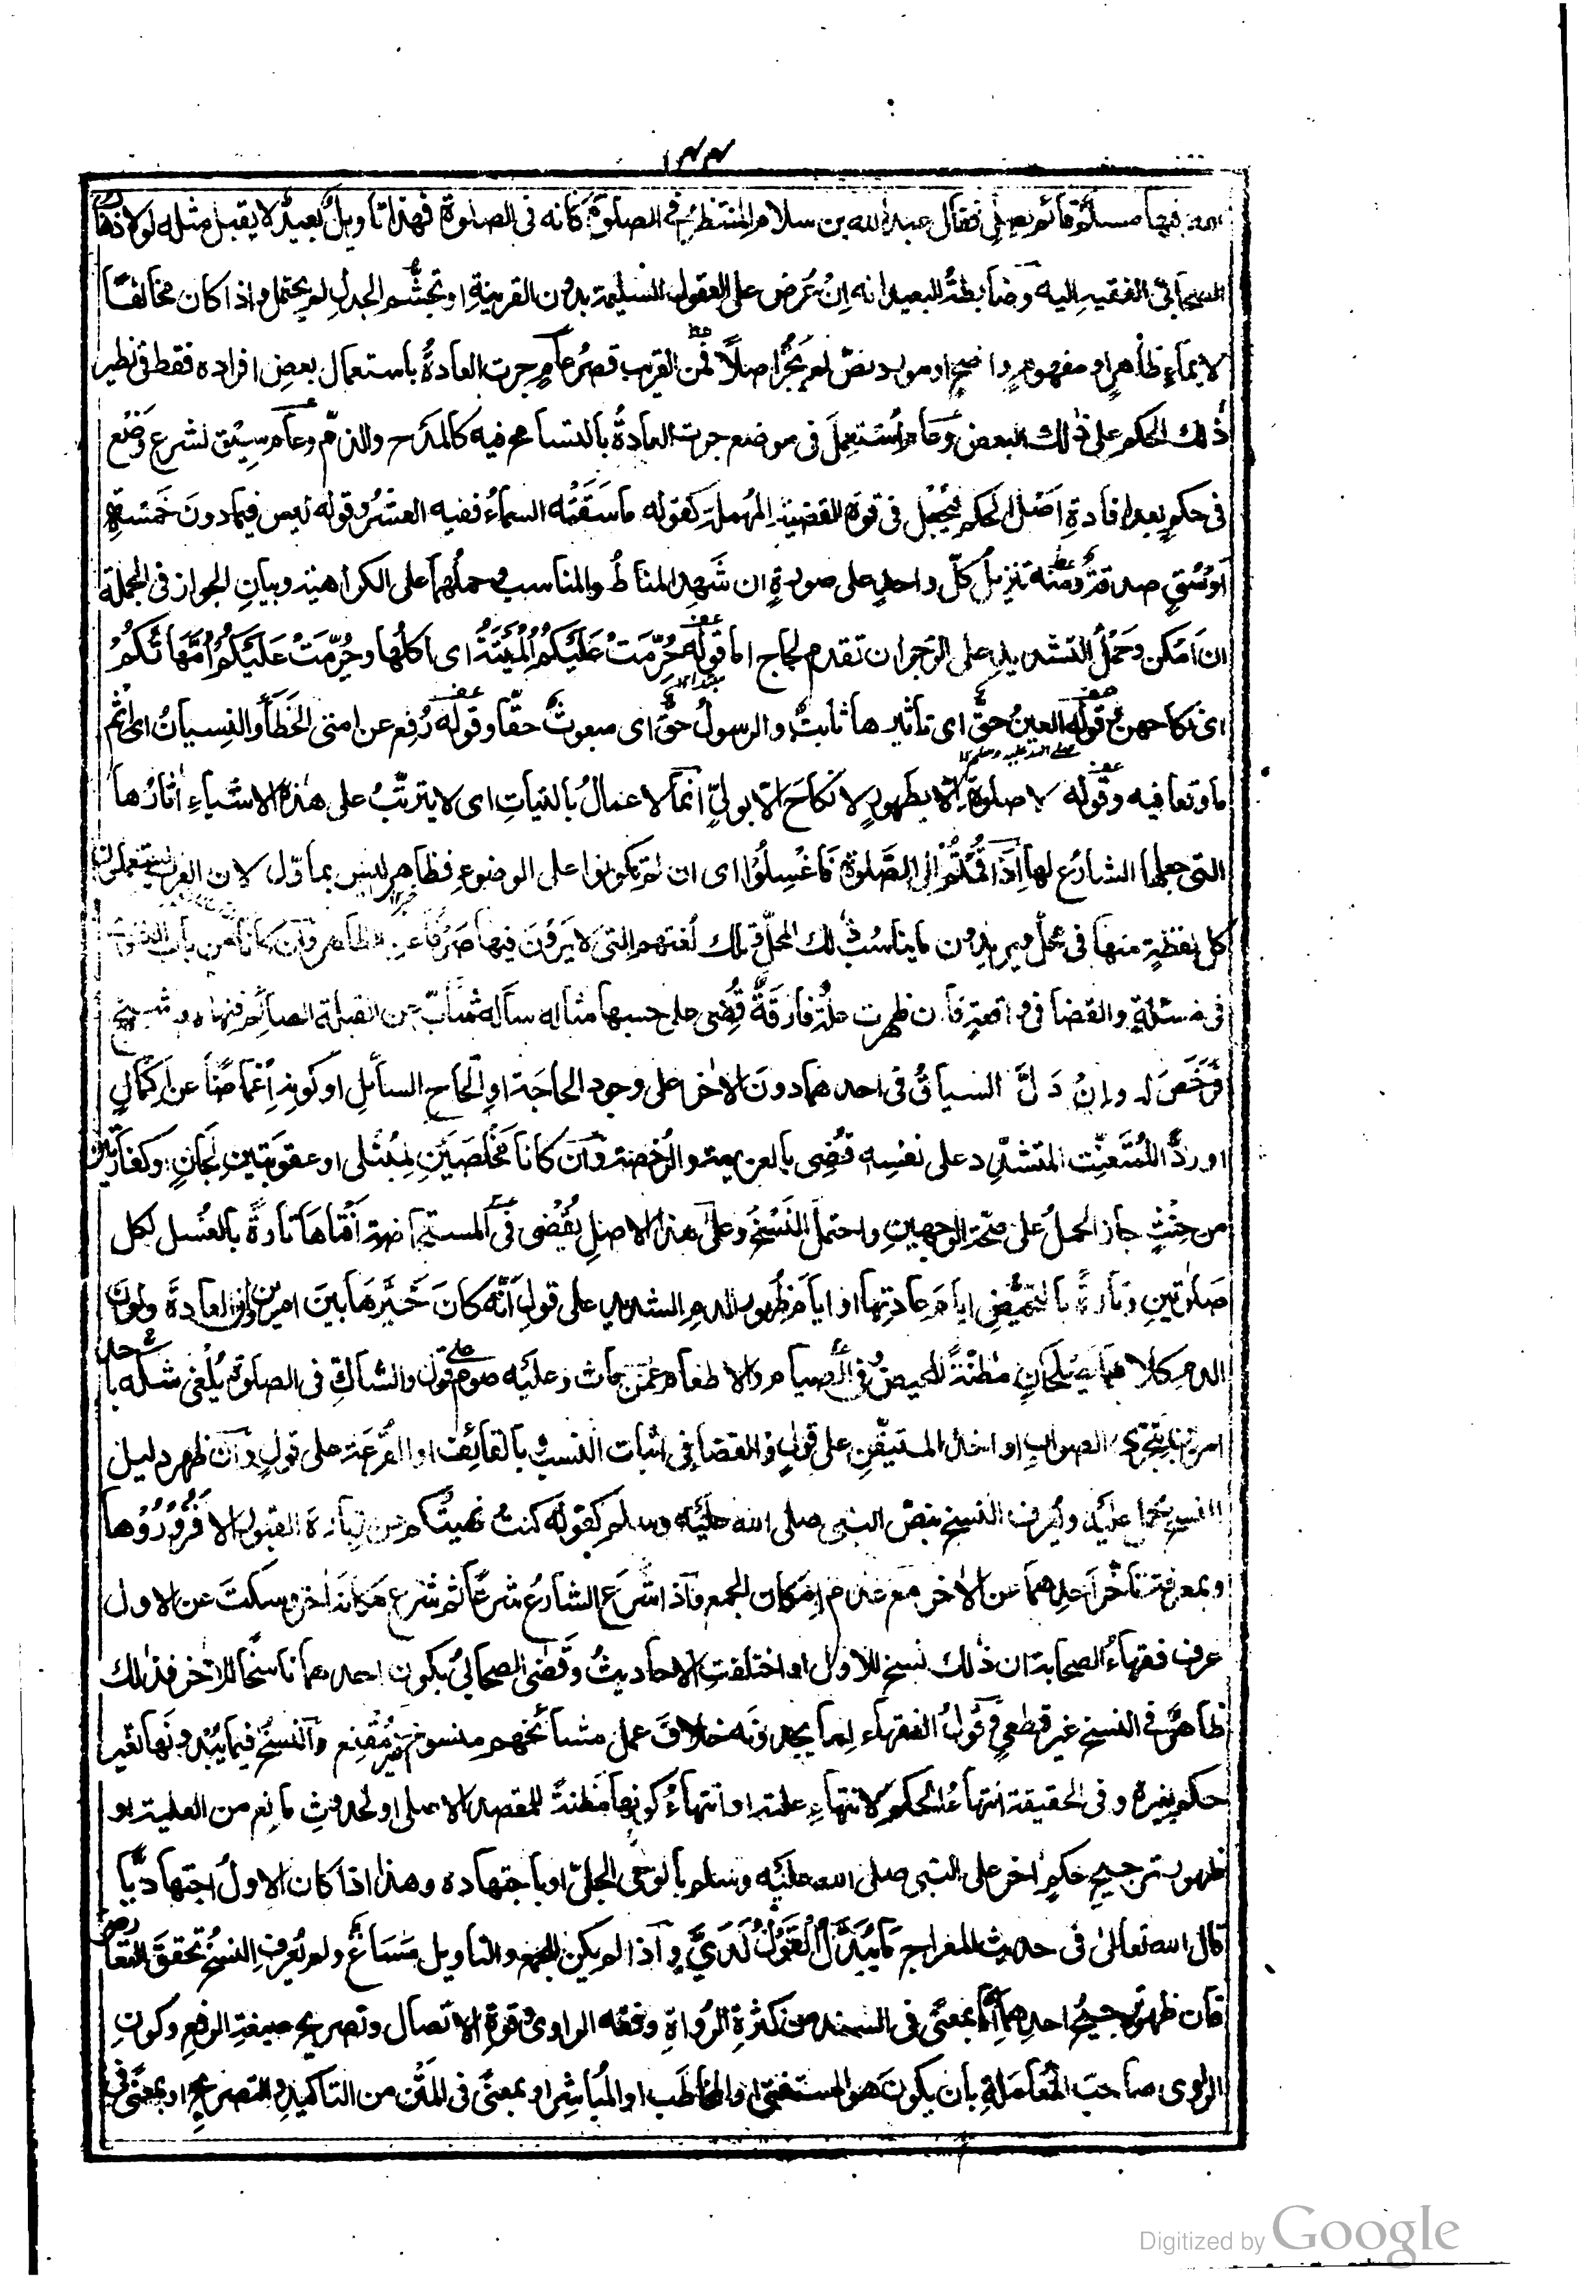 ١٤٤
الله فيها مسلم قائم يصلي فقال عبد الله بن سلام المنتظر في الصلوة كانه في الصلوة فهذا تاويل بعيد لا يقبل مثله لولا ذهاب
الصحابي الفقيه اليه وضابطة البعيد انه ان عرض على العقول السليمة بدون القرينة او تجشم الجدل لم يحتمل واذا كان مخالفًا
لايماء ظاهر او مفهوم واضح او مورد نص لم يجز اصلا فمن القريب قصر عام جرت العادة باستعمال بعض افراده فقط في نظير
ذلك الحكم على ذلك البعض وعام استعمل في موضع جرت العادة بالتسامح فيه كالمدح والذم وعام سيق لشرع وضع
في حكم بعد افادة اصل الحكم فيجعل في قوة القضية المهملة كقوله ما سقته السماء ففيه العشر وقوله ليس فيما دون خمسة
اوسق صدقة ومنه تنزيل كل واحد على صورة ان شهد المناط والمناسب وحملهما على الكراهية وبيان الجواز في الجملة
ان امكن وحمل التشديد على الزجر ان تقدم لجاج اما قوله حُرِّمَتْ عَلَيْكُمُ الْمَيْتَةُ اى اكلها وحُرِّمَتْ عَلَيْكُمْ أُمَّهَاتُكُمْ
اى نكاحهن وقوله العين حق اى تاثيرها ثابت والرسول حق اى مبعوث حقا وقوله رفع عن امتي الخطأ والنسيان اى اثم
ما وقعا فيه وقوله صلى الله عليه وسلم لا صلوة الا بطهور لا نكاح الا بولي انما الاعمال بالنيات اى لا يترتب على هذه الاشياء آثارها
التي جعلها الشارع لها اذا قمتم الى الصلوة فاغسلوا اى ان لم تكونوا على الوضوء فظاهر ليس بماول لان العرب يستعملون
كل لفظة منها في محل ويريدون ما يناسب ذلك المحل وتلك لغتهم التي لا يرون فيها صرفا عن الظاهر وان كانا من باب الفتوى
في مسئلة والقضا في واقعة فان ظهرت علة فارقة قضى على حسبها مثاله ساله شاب عن القبلة للصائم فنهاه و شيخ
فرخص له وان دل السياق في احدهما دون الآخر على وجود الحاجة او الحاح السائل او كونه اغماضا عن اكمال
او رد المتعنت المتشدد على نفسه قضى بالعزيمة والرخصة وان كانا مخلصين لمبتلى او عقوبتين لجان او كفارتين
من حنث جاز الحمل على صحة الوجهين واحتمل النسخ وعلى هذا الاصل يقضى في المستحاضة افتاها تارة بالغسل لكل
صلوتين وتارة بالتحيض ايام عادتها او ايام ظهور الدم الشديد على قول انه كان خيرها بين امرين وان العادة ولون
الدم كلاهما يصلحان مظنة للحيض وفي الصيام والاطعام عمن مات وعليه صوم على قول والشاك في الصلوة يلغى شكه باحد
امرين بتحرى الصواب او اخذ المتيقن على قول والقضا في اثبات النسب بالقائف او القرعة على قول وان ظهر دليل
النسخ حمل عليه ويعرف النسخ بنص النبي صلى الله عليه وسلم كقوله كنت نهيتكم عن زيارة القبور الا فزوروها
وبمعرفة تأخر احدهما عن الآخر مع عدم امكان الجمع واذا شرع الشارع شرعا ثم شرع مكانه آخر وسكت عن الاول
عرف فقهاء الصحابة ان ذلك نسخ للاول او اختلفت الاحاديث وقضى الصحابي بكون احدهما ناسخا للآخر فذلك
ظاهر في النسخ غير قطعي وقول الفقهاء لما يجدونه خلاف عمل مشائخهم منسوخ غير مقنع والنسخ فيما يبدو لنا تغير
حكم بغيره وفي الحقيقة انتهاء الحكم لانتهاء علته او انتهاء كونها مظنة للمقصد الاصلى او لحدوث مانع من العلية او
ظهور ترجيح حكم آخر على النبي صلى الله عليه وسلم بالوحى الجلي او باجتهاده وهذا اذا كان الاول اجتهاديا
قال الله تعالى في حديث المعراج مَا يُبَدَّلُ الْقَوْلُ لَدَيَّ واذا لم يكن للجمع والتاويل مساغ ولم يعرف النسخ تحقق التعارض
فان ظهر ترجيح احدهما اما بمعنى في السند من كثرة الرواة وفقه الراوى وقوة الاتصال وتصريح صيغة الرفع وكون
الراوى صاحب المعاملة بان يكون هو المستفتي او المخاطب او المباشر او بمعنى في المتن من التاكيد والتصريح او بمعنى في
Digitized by Google